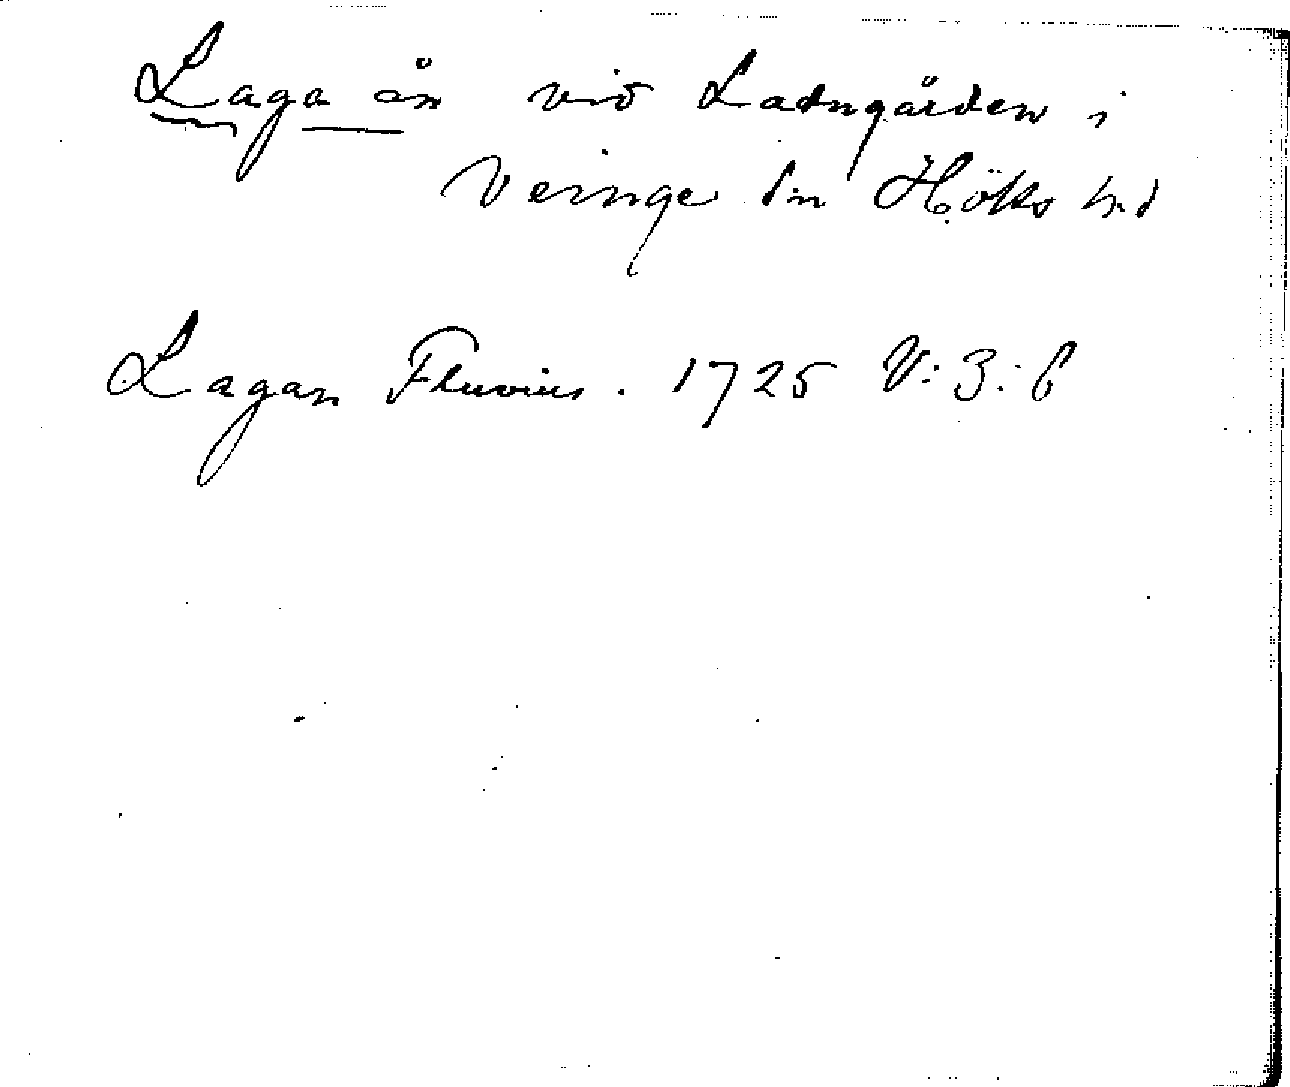 Laga ån vid Ladugården i
Veinge sn Höks hrd
Lagan Fluvius. 1725 V: 3: 6